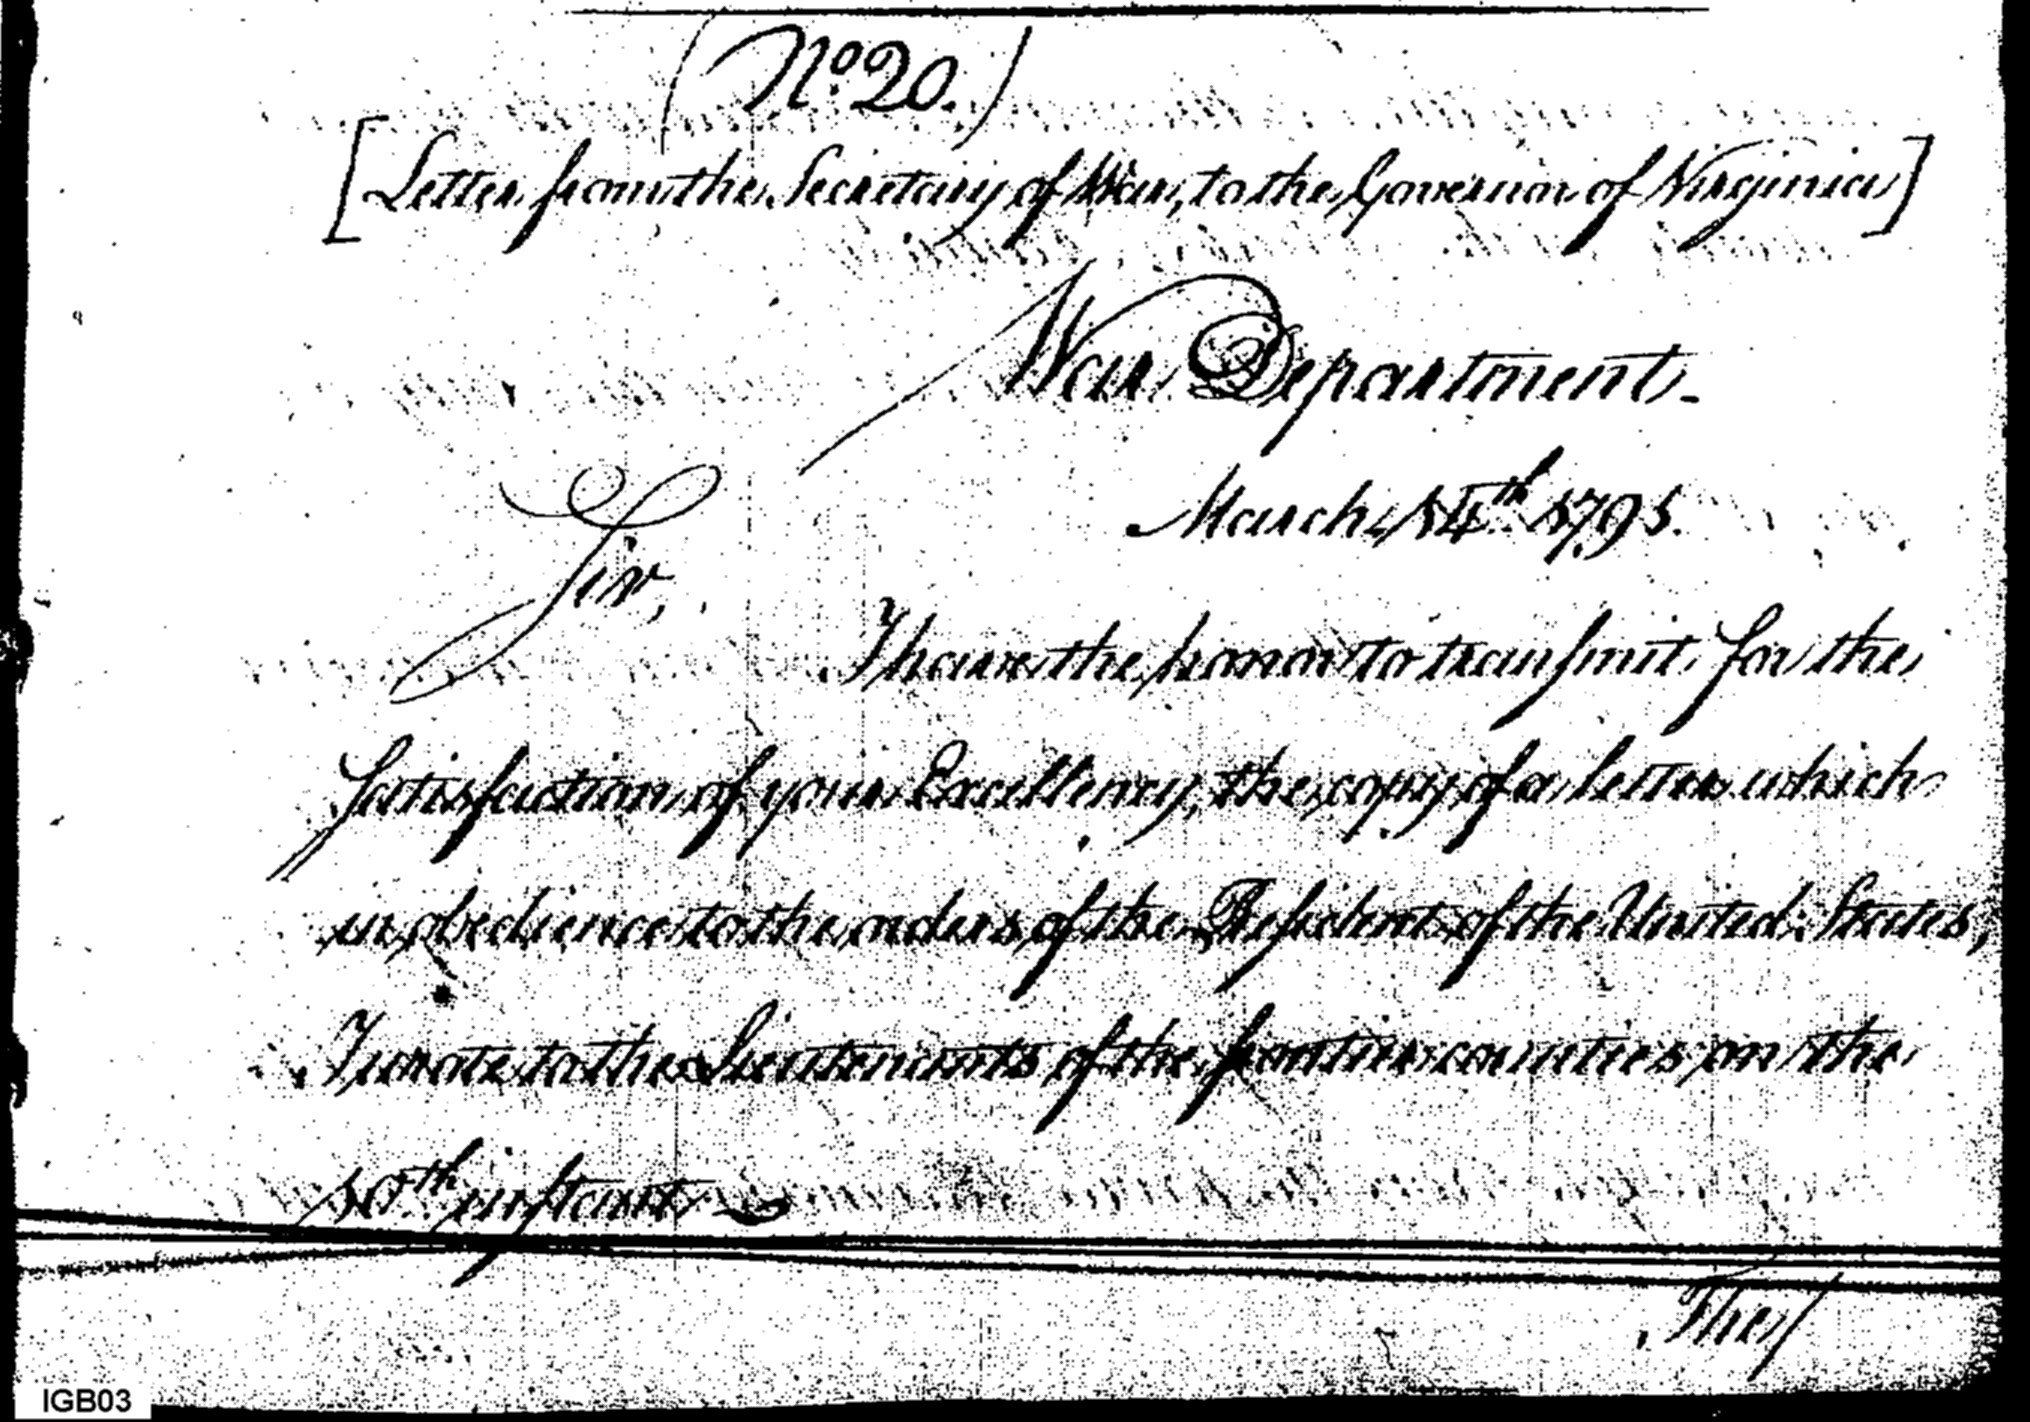 (No. 20.)
[Letter from the Secretary of War, to the Governor of Virginia]
War Department.
March 14th 1791.
Sir,
I have the honor to transmit for the
satisfaction of your Excellency, the copy of a letter which
in obedience to the orders of the President of the United States,
I wrote to the Lieutenants of the frontier counties on the
10th instant
They
IGB03